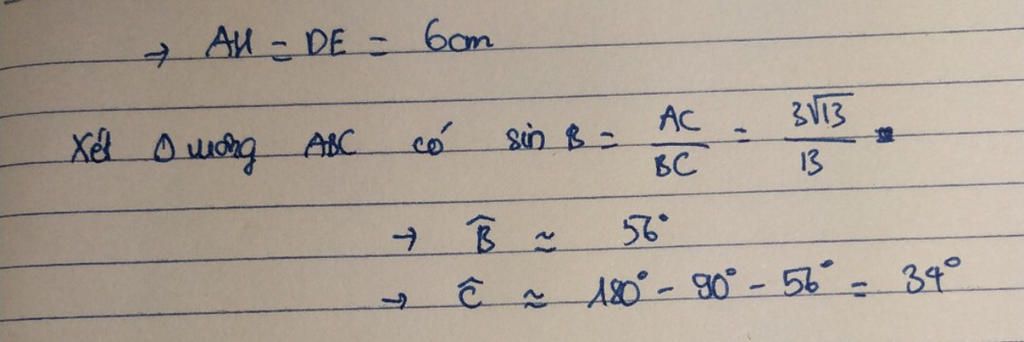 → AH = DE = 6cm
Xét Δ vuông ABC có sin B = AC/BC = 3√13/13
→ B̂ ≈ 56°
→ Ĉ ≈ 180° - 90° - 56° = 34°